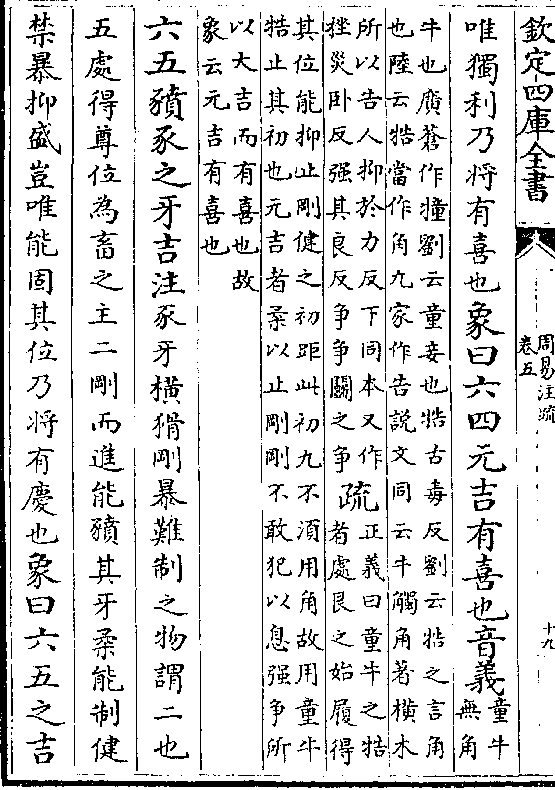 欽定四庫全書
周易注疏
卷五
十九
唯獨利乃將有喜也象曰六四元吉有喜也音義
童牛
無角
牛也廣蒼作犝劉云童妾也牿古毒反劉云牿之言角
也陸云牿當作角九家作告説文同云牛觸角著橫木
所以告人抑於力反下同本又作
挫災卧反强其良反爭爭鬭之爭
疏
正義曰童牛之牿
者處艮之始履得
其位能抑止剛健之初距此初九不須用角故用童牛
牿止其初也元吉者柔以止剛剛不敢犯以息强爭所
以大吉而有喜也故
象云元吉有喜也
六五豶豕之牙吉注豕牙橫猾剛暴難制之物謂二也
五處得尊位為畜之主二剛而進能豶其牙柔能制健
禁暴抑盛豈唯能固其位乃將有慶也象曰六五之吉